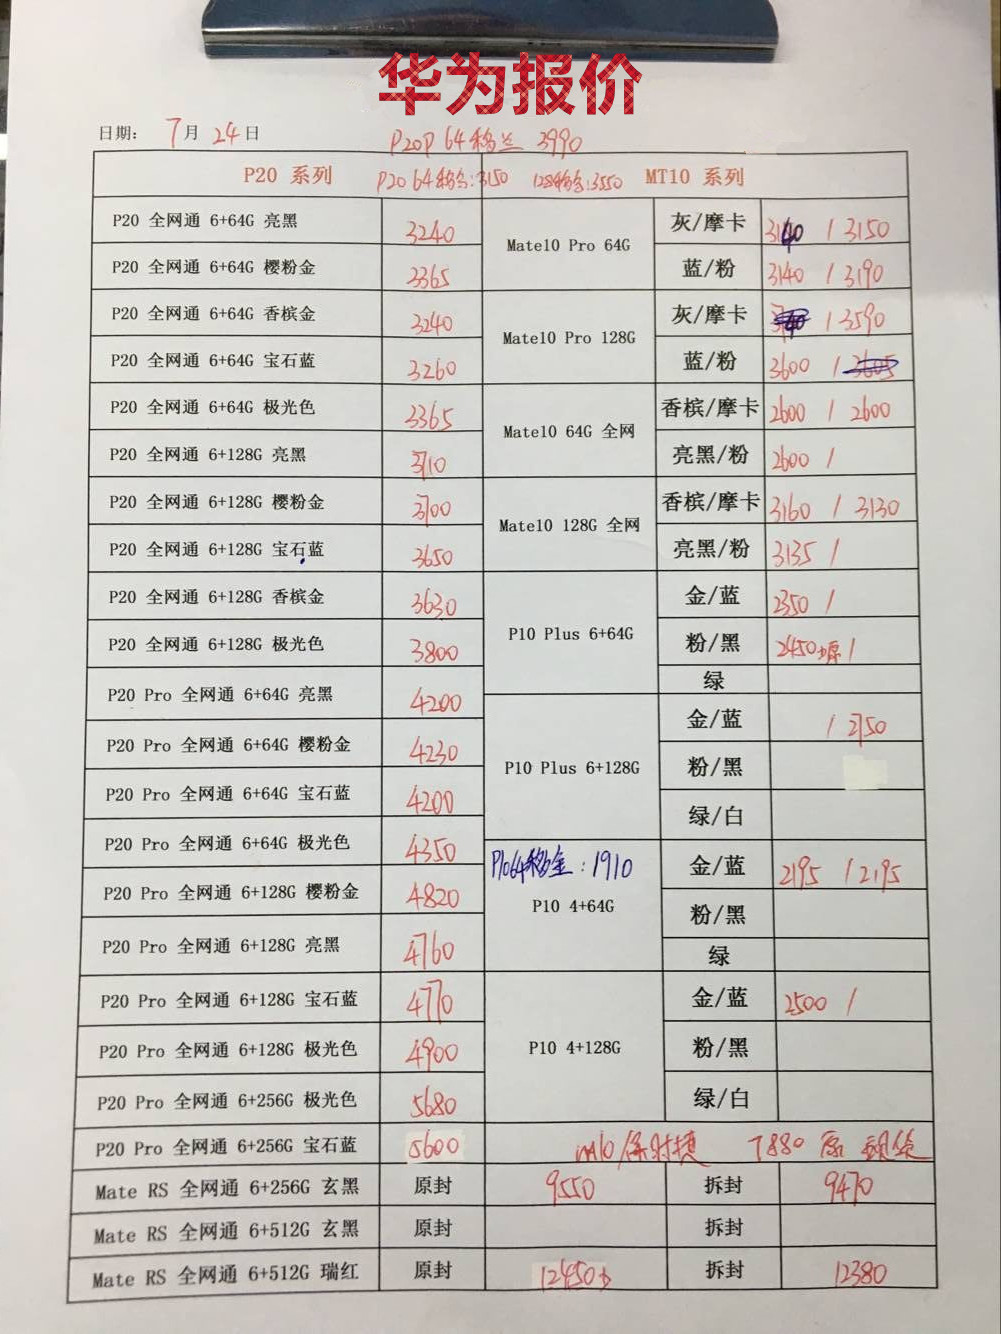 华为报价
日期: 7月24日 P20P 64移兰 3990
P20 系列 P20 64移金:3150 128移金:3550 MT10 系列
P20 全网通 6+64G 亮黑 3240
Mate10 Pro 64G 灰/摩卡 3140 / 3150
P20 全网通 6+64G 樱粉金 3365
蓝/粉 3140 / 3190
P20 全网通 6+64G 香槟金 3240
Mate10 Pro 128G 灰/摩卡 / 3590
P20 全网通 6+64G 宝石蓝 3260
蓝/粉 3600 / 3605
P20 全网通 6+64G 极光色 3365
Mate10 64G 全网 香槟/摩卡 2600 / 2600
P20 全网通 6+128G 亮黑 3710
亮黑/粉 2600 /
P20 全网通 6+128G 樱粉金 3700
Mate10 128G 全网 香槟/摩卡 3160 / 3130
P20 全网通 6+128G 宝石蓝 3650
亮黑/粉 3135 /
P20 全网通 6+128G 香槟金 3630
P10 Plus 6+64G 金/蓝 2350 /
P20 全网通 6+128G 极光色 3800
粉/黑 2450 /
绿
P20 Pro 全网通 6+64G 亮黑 4200
P10 Plus 6+128G 金/蓝 / 2750
P20 Pro 全网通 6+64G 樱粉金 4230
粉/黑
P20 Pro 全网通 6+64G 宝石蓝 4200
绿/白
P20 Pro 全网通 6+64G 极光色 4350
P1064移金:1910
P10 4+64G 金/蓝 2195 / 2195
P20 Pro 全网通 6+128G 樱粉金 4820
粉/黑
P20 Pro 全网通 6+128G 亮黑 4760
绿
P20 Pro 全网通 6+128G 宝石蓝 4770
P10 4+128G 金/蓝 2500 /
P20 Pro 全网通 6+128G 极光色 4900
粉/黑
P20 Pro 全网通 6+256G 极光色 5680
绿/白
P20 Pro 全网通 6+256G 宝石蓝 5600 m10保时捷 7880 原 现货
Mate RS 全网通 6+256G 玄黑 原封 9550 拆封 9470
Mate RS 全网通 6+512G 玄黑 原封 拆封
Mate RS 全网通 6+512G 瑞红 原封 12450 拆封 12380